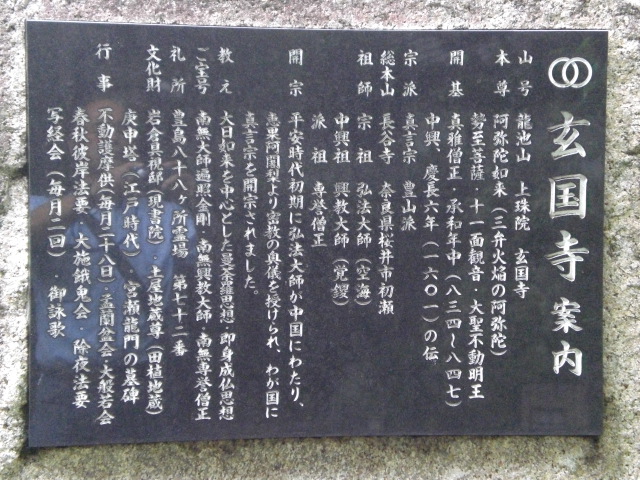 玄国寺案内
山号 龍池山 上珠院 玄国寺
本尊 阿弥陀如来(三弁火焔の阿弥陀)
勢至菩薩・十一面観音・大聖不動明王
開基 真雅僧正・承和年中(八三四~八四七)
中興、慶長六年(一六〇一)の伝
宗派 真言宗 豊山派
総本山 長谷寺 奈良県桜井市初瀬
祖師 宗祖 弘法大師(空海)
中興祖 興教大師(覚鑁)
派祖 専誉僧正
開宗 平安時代初期に弘法大師が中国にわたり、
恵果阿闍梨より密教の奥儀を授けられ、わが国に
真言宗を開宗されました。
教え 大日如来を中心とした曼荼羅思想・即身成仏思想
ご宝号 南無大師遍照金剛・南無興教大師・南無専誉僧正
礼所 豊島八十八ヶ所霊場 第七十二番
文化財 岩倉具視邸(現書院) 土屋地蔵尊(田植地蔵)
庚申塔(江戸時代)・宮瀬龍門の墓碑
行事 不動護摩供(毎月二十八日)・盂蘭盆会・大般若会
春秋彼岸法要・大施餓鬼会・除夜法要
写経会(毎月二回)・御詠歌